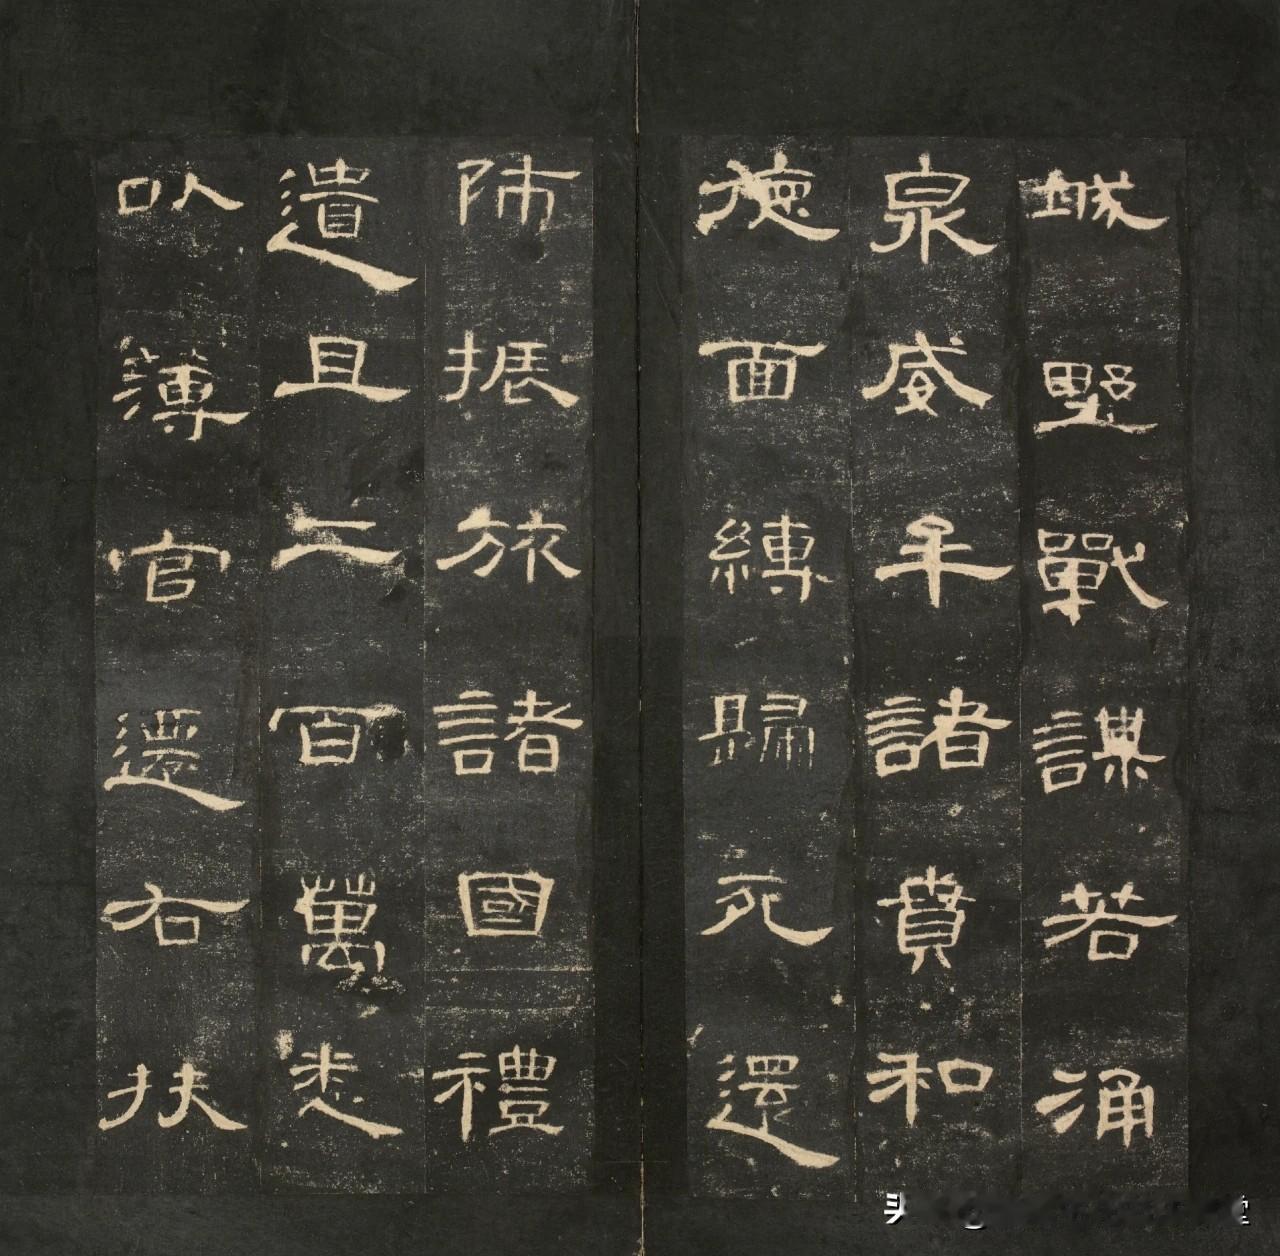 城野戰謀若涌
泉威牟諸賁和
德面縛歸死還
師振旅諸國禮
遺且二百萬悉
以簿官還右扶